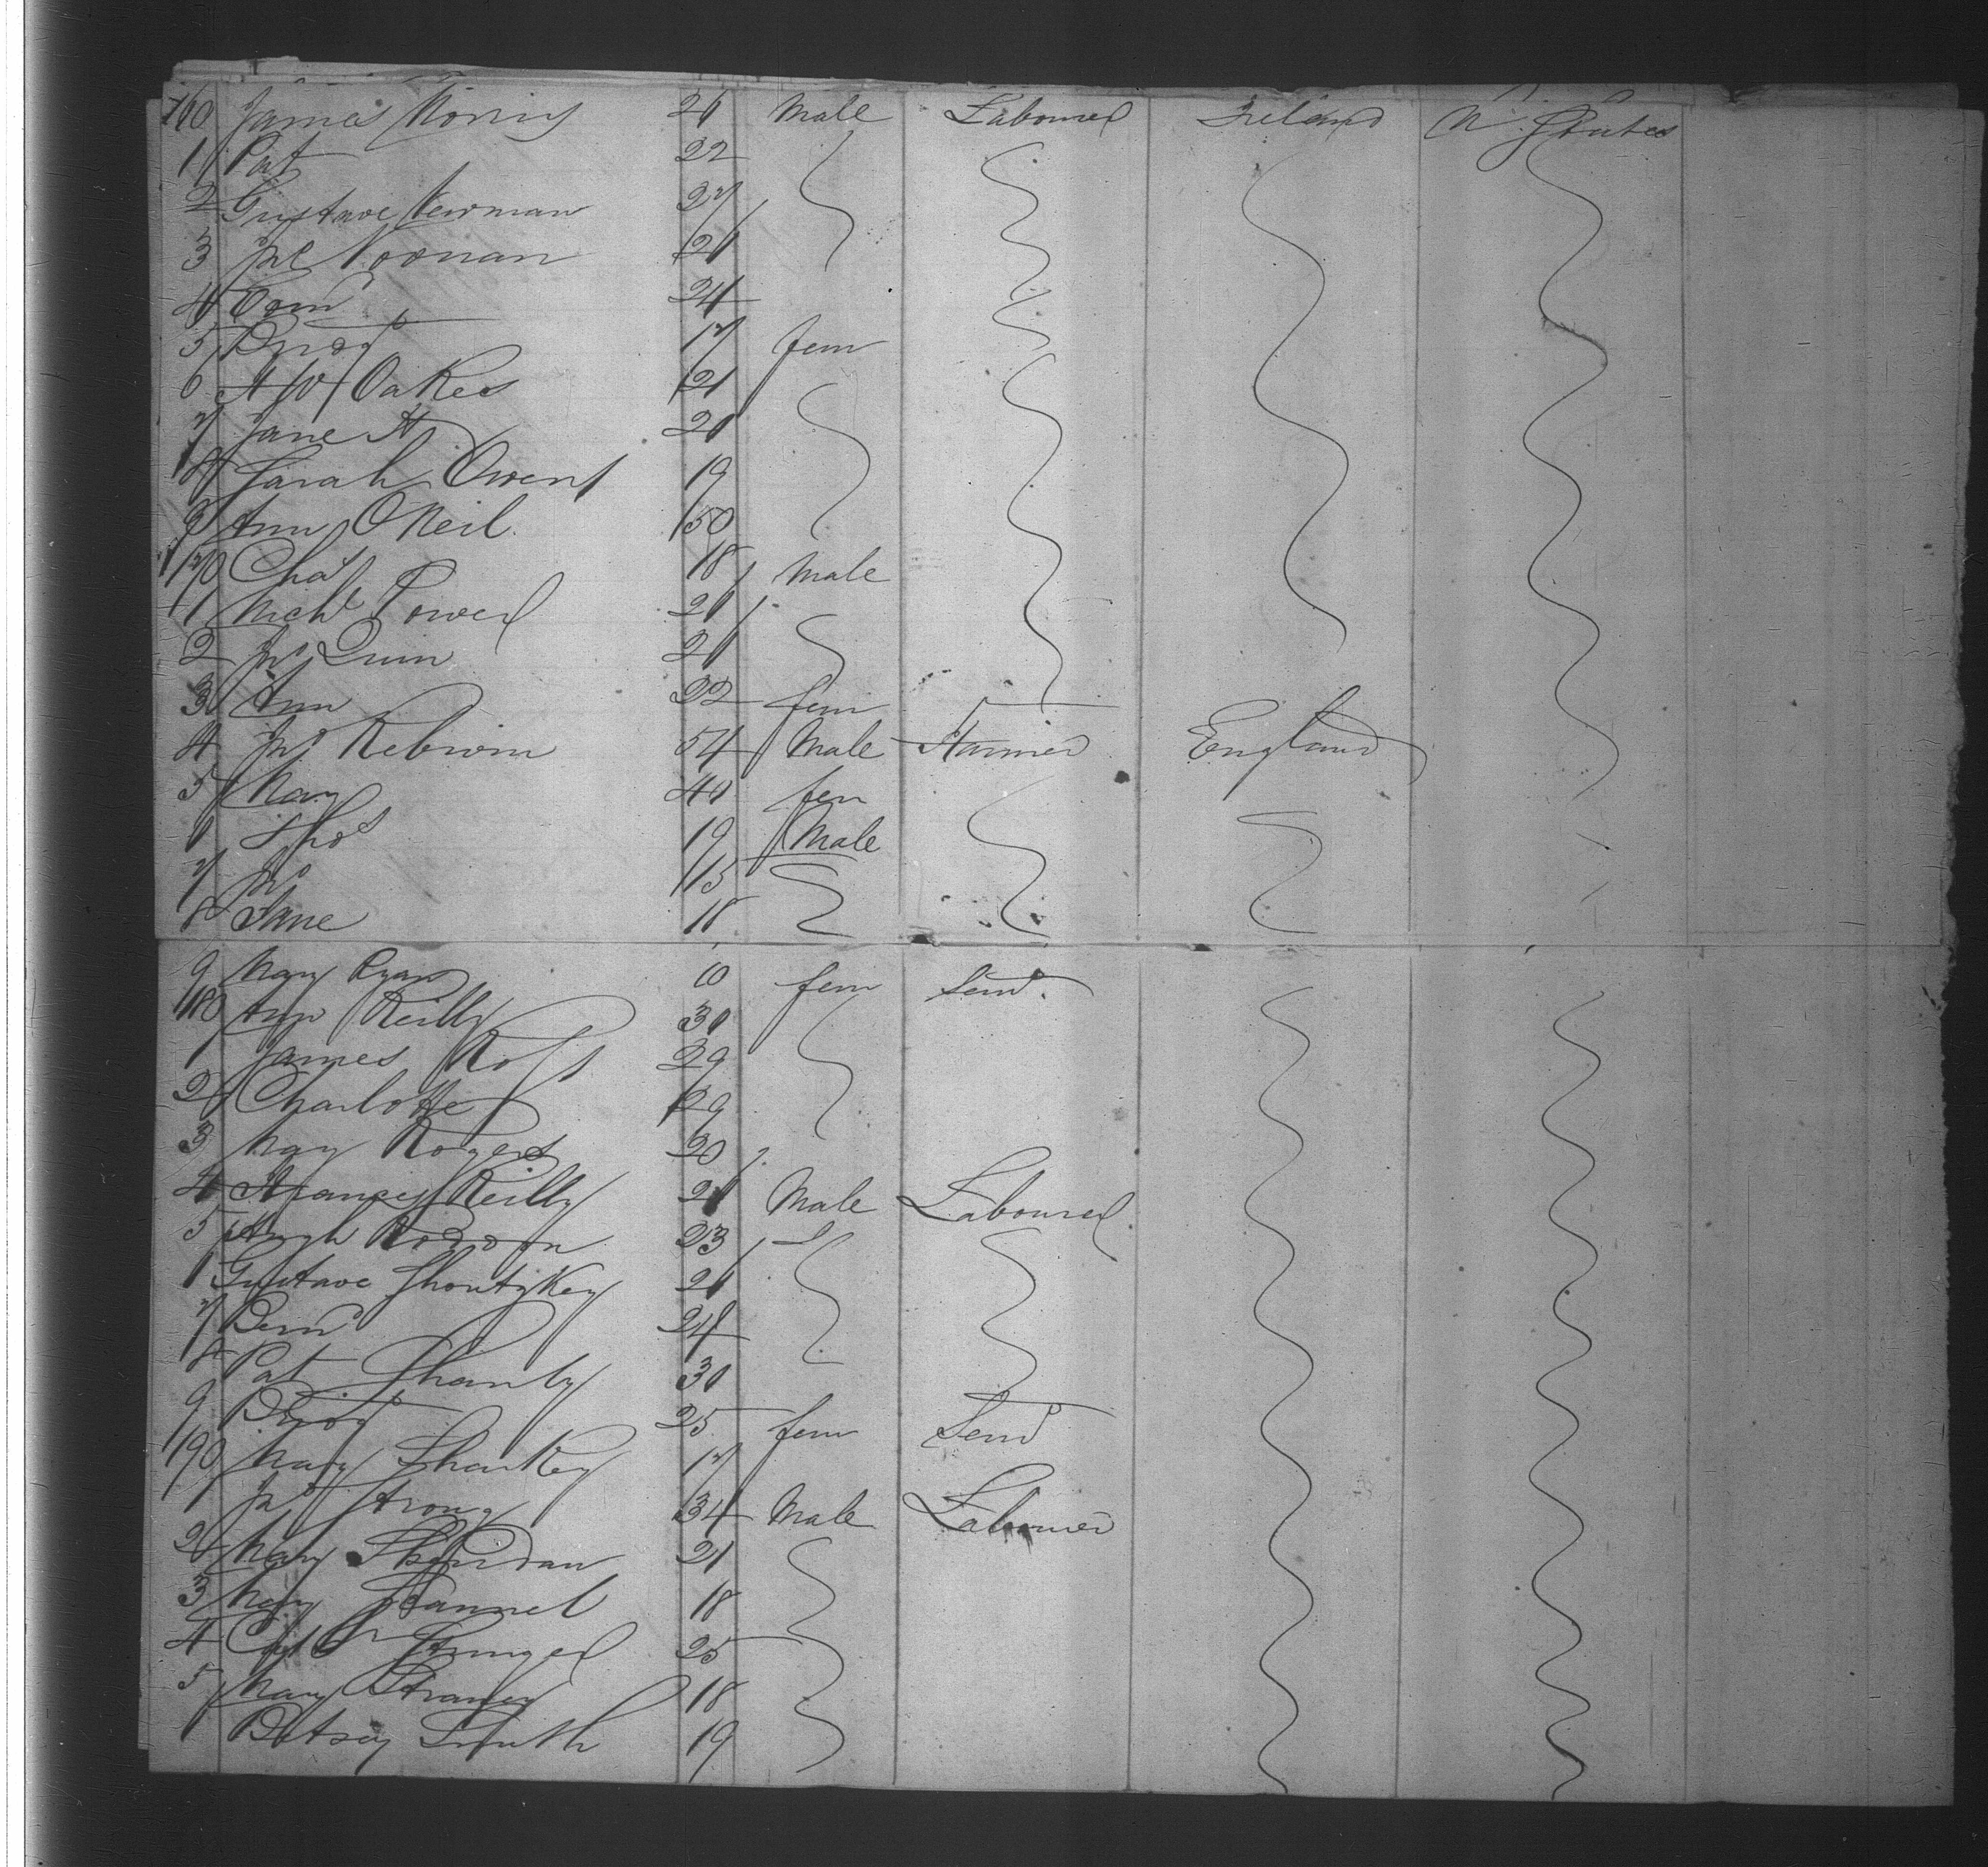 160 James Morris 20 Male Labourer Ireland U. States
1 Pat 22
2 Gustave Newman 27
3 Jno Noonan 20
4 Tom 24
5 Bridgt 17 fem
6 Oakes 21
7 Jane A 20
8 Sarah Owens 19
9 Ann O Neil 50
170 Chas 18 Male
1 Michl Power 20
2 Jno Quin 20
3 Ann 22 fem
4 Jno 54 Male Farmer England
5 Mary 40 fem
6 Thos 19 Male
7 Jno 15
8 Jane 18
9 Mary Ryan 10 fem Servt
180 Ann Reilly 30
1 James Ross 29
2 Charlotte 29
3 Mary Rogers 20
4 Francis Reilly 20 Male Labourer
5 Hugh 23
6 Gustave 20
7 Bernd 24
8 Pat Shanly 30
9 Bridgt 25 fem Servt
190 Mary Sharkey 17
1 Jno Strong 34 Male Labourer
2 Mary Sheridan 21
3 Mary 18
4 25
5 Mary 18
6 Betsey Smith 19